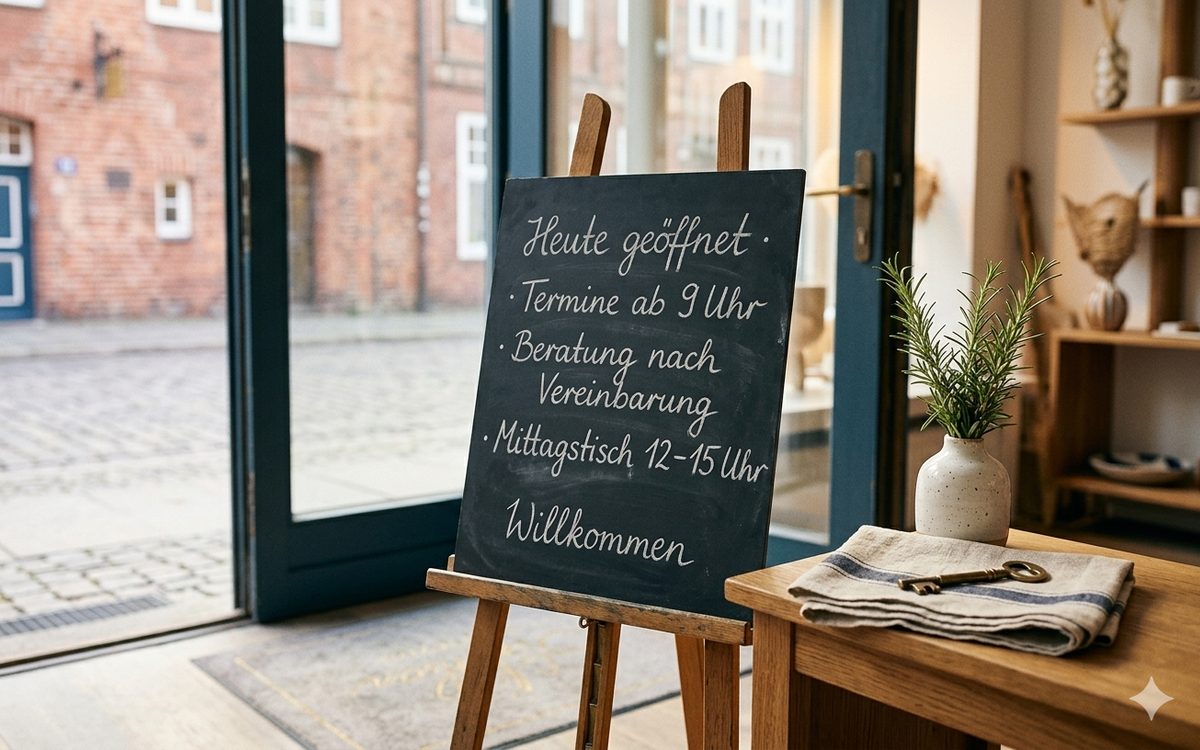 Heute geöffnet ·
· Termine ab 9 Uhr
· Beratung nach
Vereinbarung
· Mittagstisch 12–15 Uhr
Willkommen